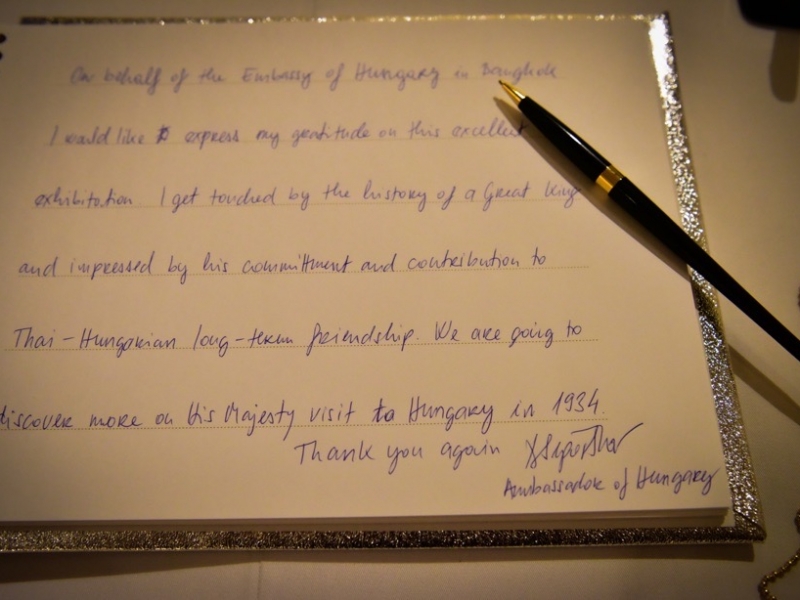 On behalf of the Embassy of Hungary in Bangkok
I would like to express my gratitude on this excellent
exhibitation. I get touched by the history of a Great King
and impressed by his committment and contribution to
Thai-Hungarian long-term friendship. We are going to
discover more on His Majesty visit to Hungary in 1934.
Thank you again
Ambassador of Hungary